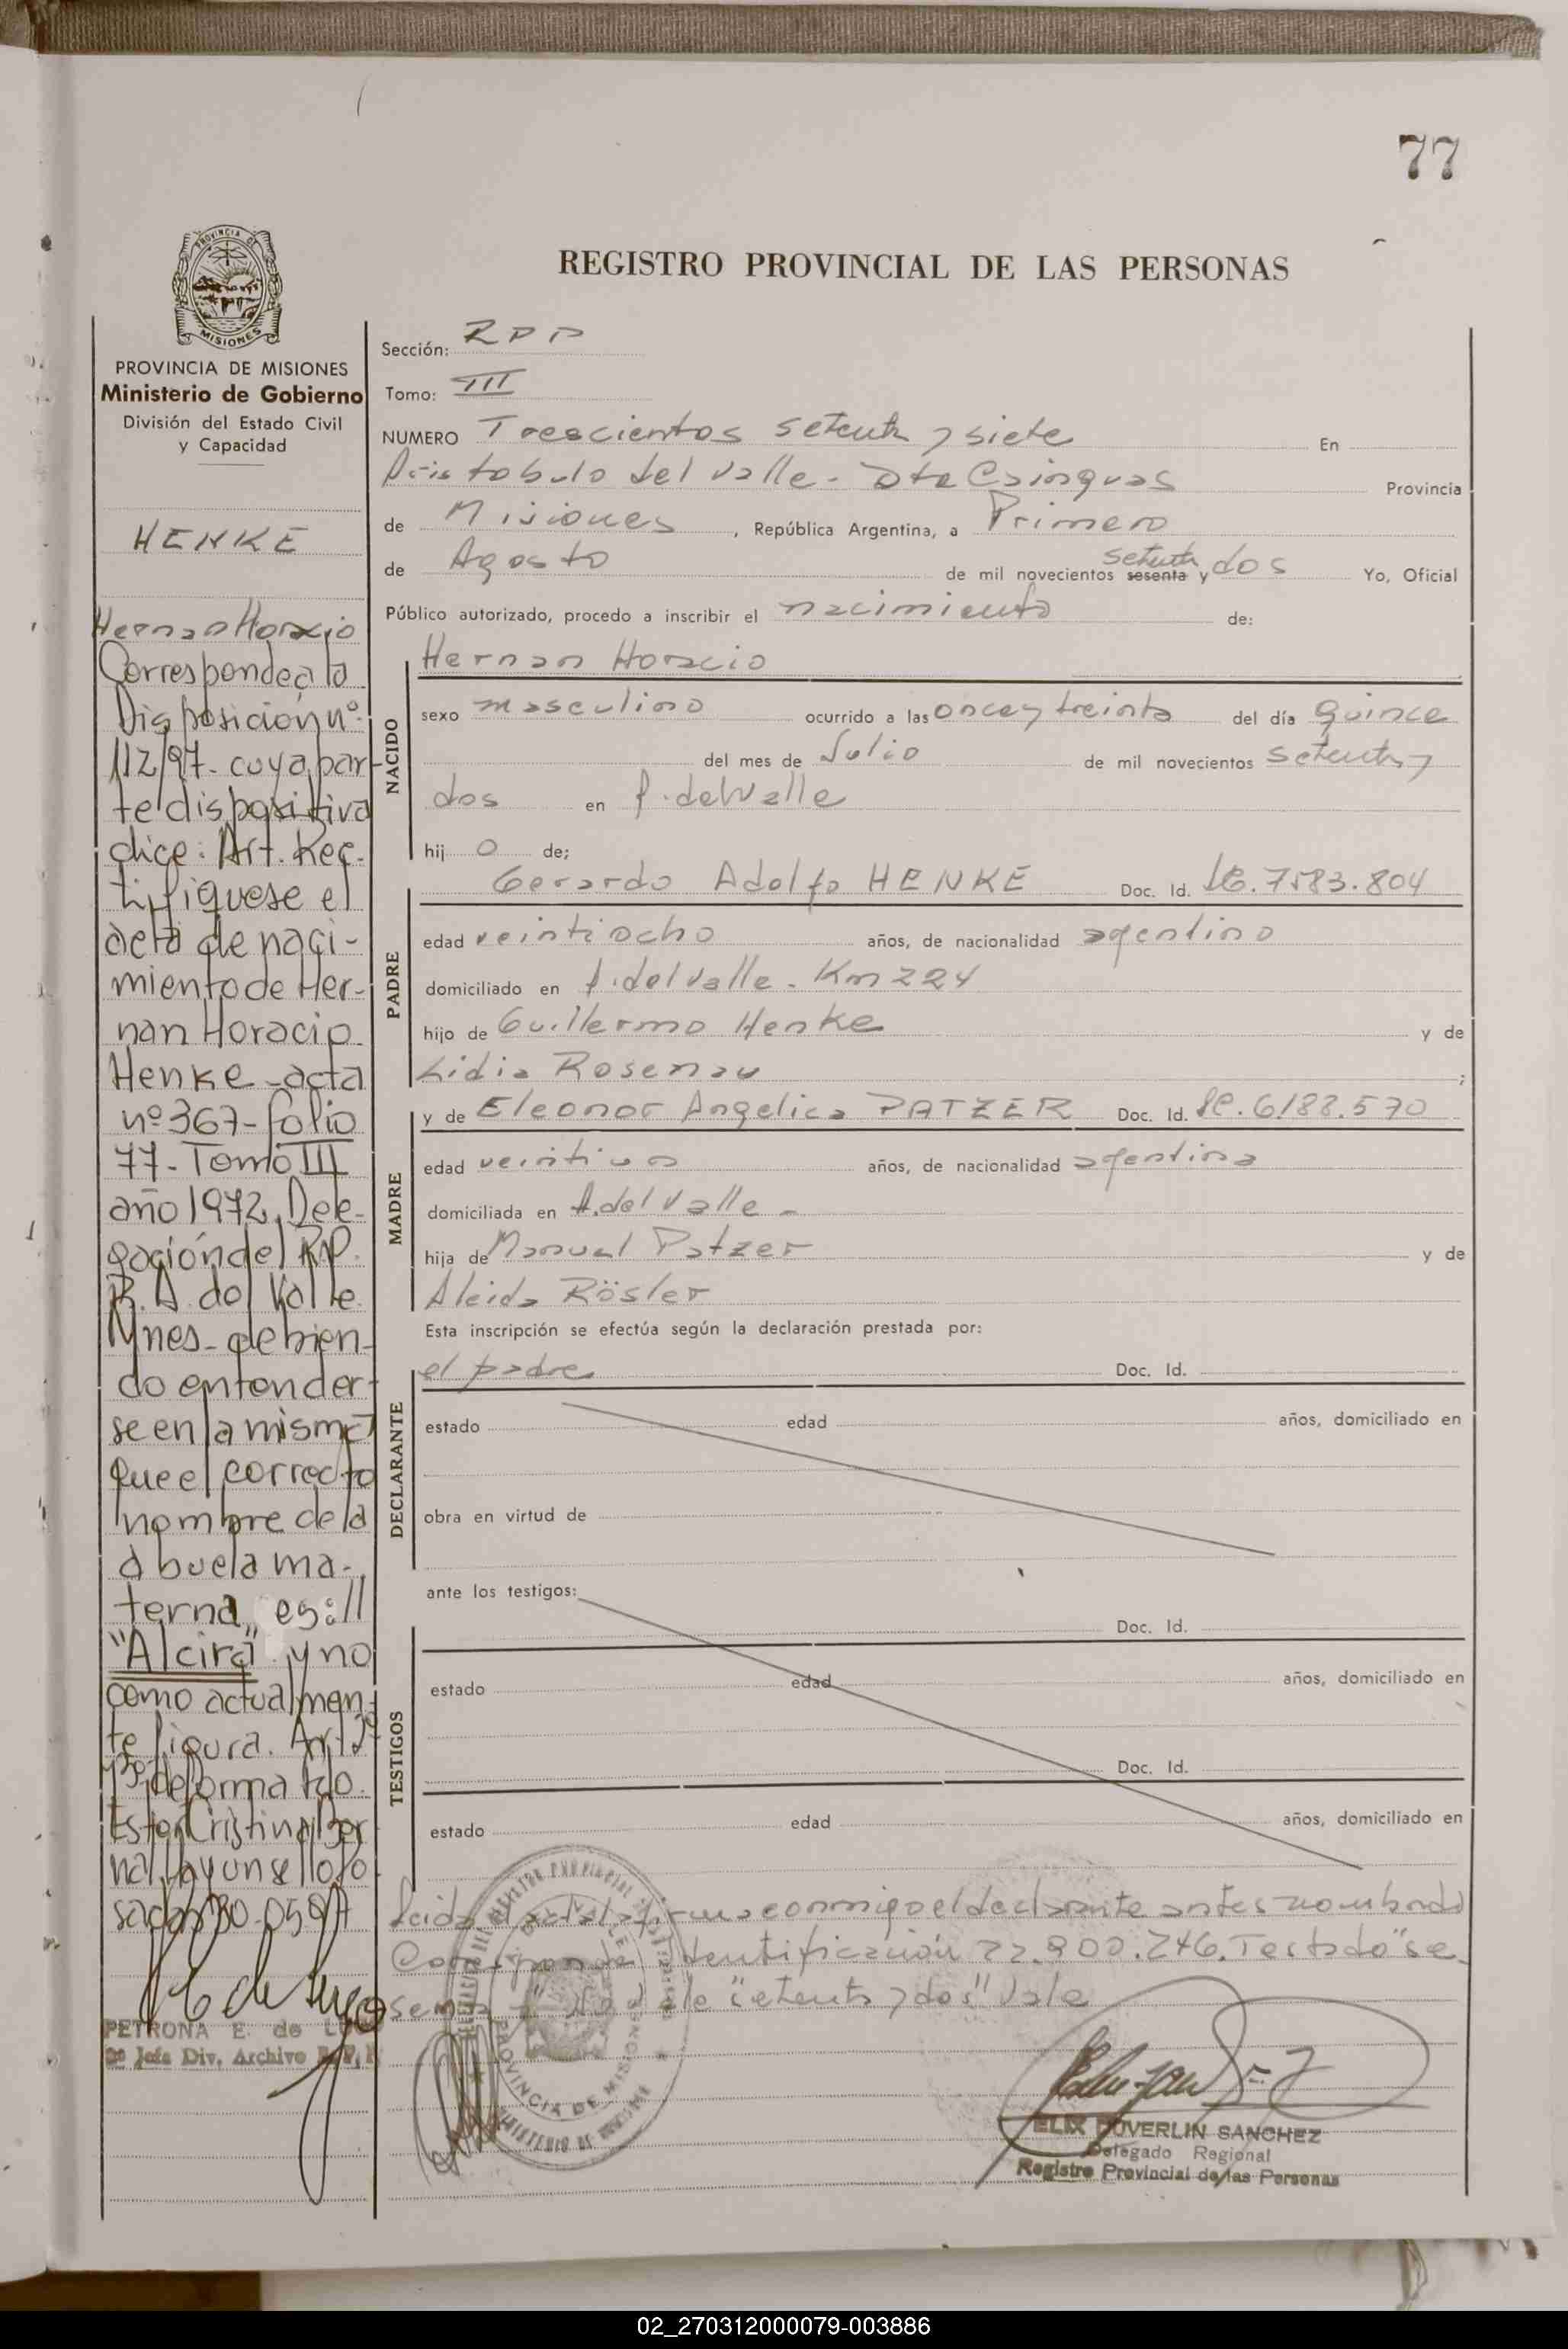 77
REGISTRO PROVINCIAL DE LAS PERSONAS
PROVINCIA DE MISIONES
Ministerio de Gobierno
División del Estado Civil
y Capacidad
HENKE
Hernan Horacio
Corresponde a la
Disposición nº
112/97- cuya par-
te dispositiva
dice: Art. Rec-
tifiquese el
acta de naci-
miento de Her-
nan Horacio
Henke - acta
nº 367- folio
77- Tomo III
año 1972, Dele-
gación del R.P.P.
A. del Valle
Mnes- debien-
do entender-
se en la misma
que el correcto
nombre de la
abuela ma-
terna es://
"Alcira" y no
como actualmen-
te figura. Art 2º
y 3º de forma Fdo.
Ester Cristina Ber
nal, hay un sello Po
sadas 30-05-97
PETRONA E. de
Jefa Div. Archivo R.P.P.
Sección: RPP
Tomo: III
NUMERO Trescientos setenta y siete En
Aristobulo del Valle - Dto Cainguas Provincia
de Misiones, República Argentina, a Primero
de Agosto de mil novecientos sesenta setenta y dos Yo, Oficial
Público autorizado, procedo a inscribir el nacimiento de:
NACIDO
Hernan Horacio
sexo masculino ocurrido a las once y treinta del día quince
del mes de Julio de mil novecientos setenta y
dos en A. del Valle
hij o de;
PADRE
Gerardo Adolfo HENKE Doc. Id. 7583.804
edad veintiocho años, de nacionalidad argentino
domiciliado en A. del Valle - Km 224
hijo de Guillermo Henke y de
Lidia Rosenau;
MADRE
y de Eleonor Angelica PATZER Doc. Id. 6188.570
edad veintiun años, de nacionalidad argentina
domiciliada en A. del Valle -
hija de Manuel Patzer y de
Aleida Rösler
Esta inscripción se efectúa según la declaración prestada por:
DECLARANTE
el padre Doc. Id.
estado edad años, domiciliado en
obra en virtud de
ante los testigos:
TESTIGOS
Doc. Id.
estado edad años, domiciliado en
Doc. Id.
estado edad años, domiciliado en
Leida el acta la firma conmigo el declarante antes nombrado
Corresponde Identificación 22.800.246. Testado "se
senta" "setenta y dos" Vale
PROVINCIA DE MISIONES
ELIX DUVERLIN SANCHEZ
Delegado Regional
Registro Provincial de las Personas
02_270312000079-003886